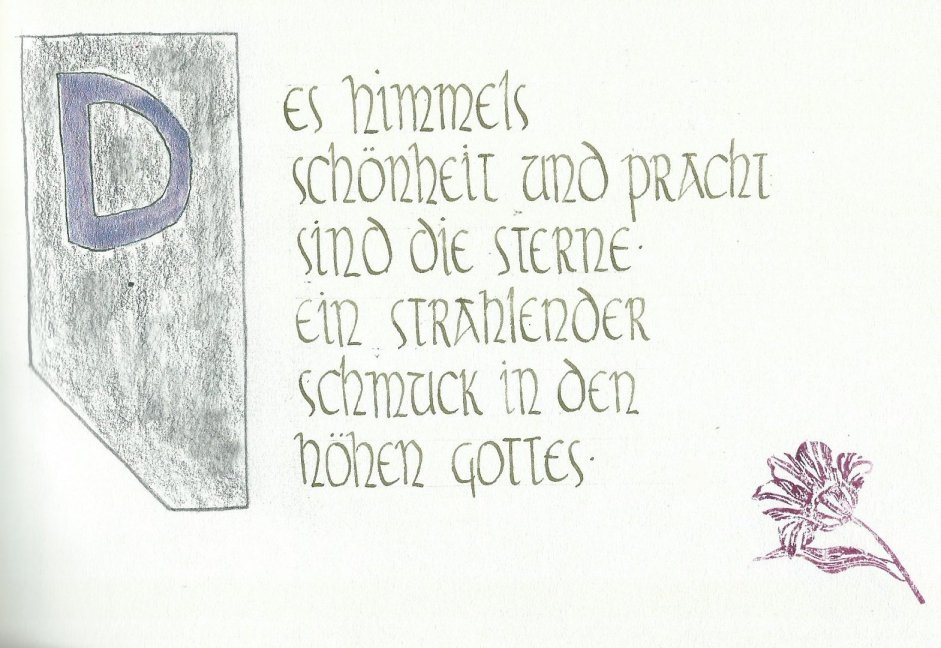 Des himmels
schönheit und pracht
sind die sterne·
ein strahlender
schmuck in den
höhen gottes·